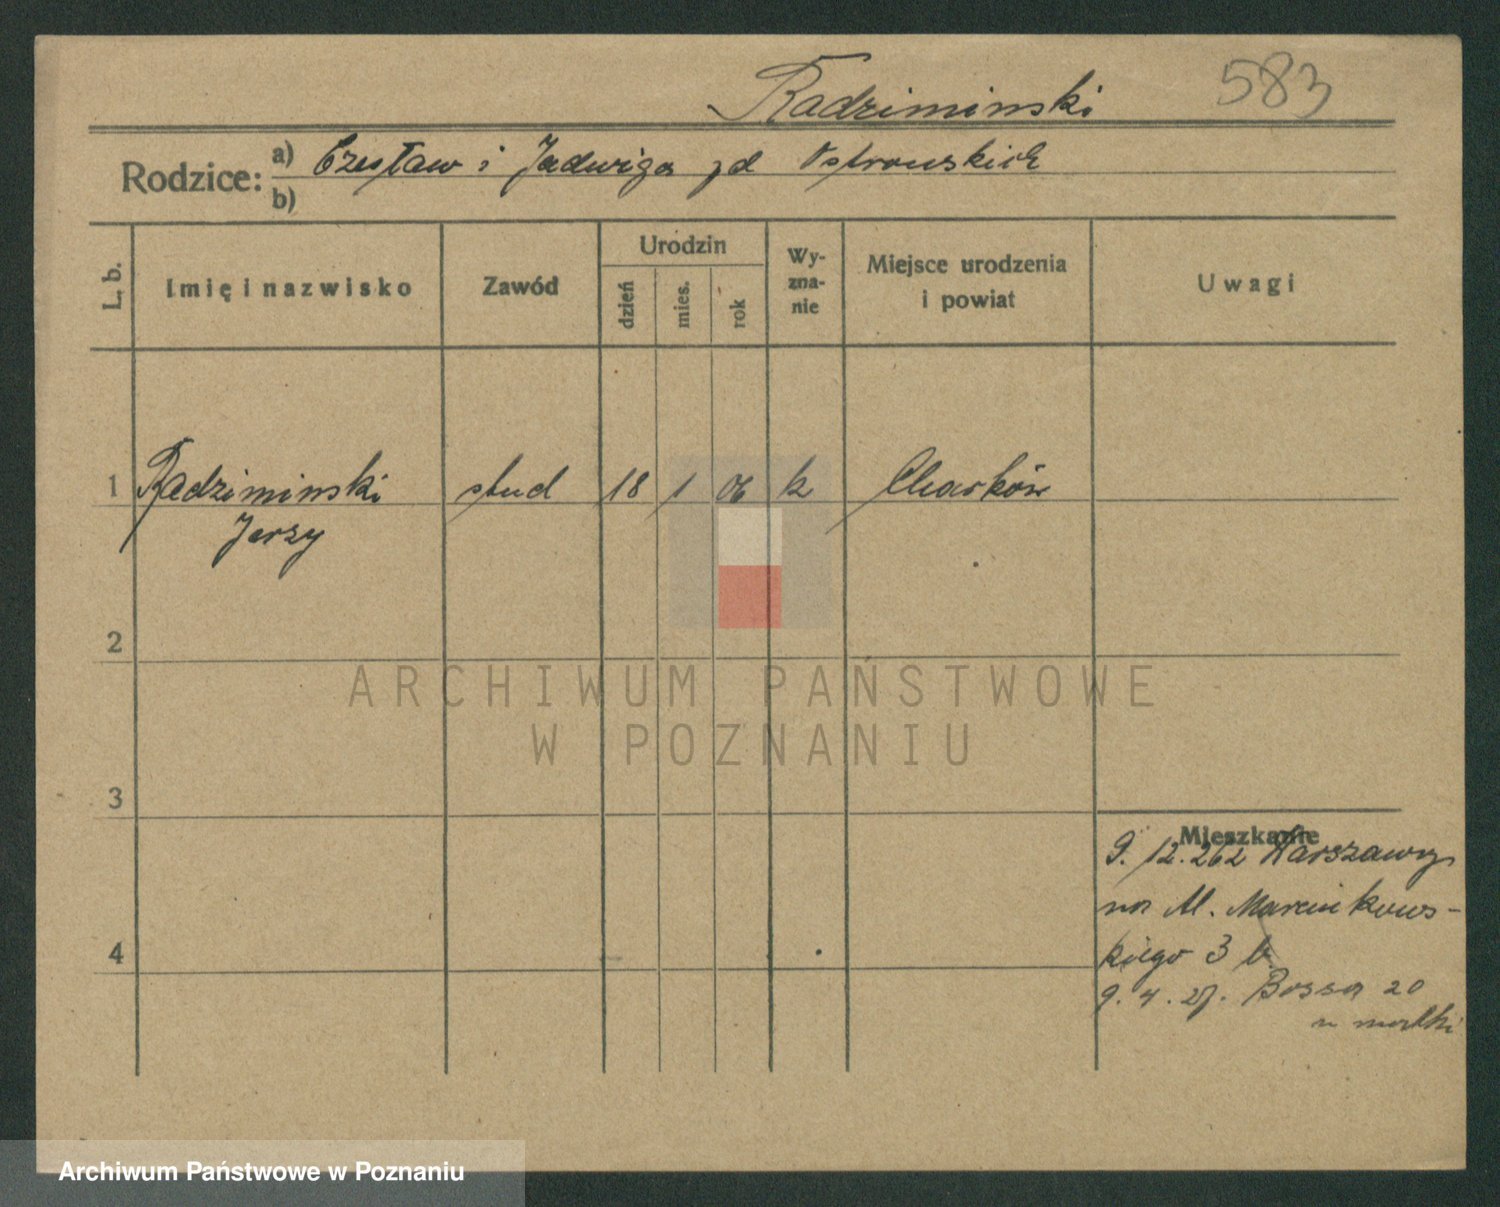 Radziminski 583
Rodzice: a) Czesław i Jadwiga zd Ostrowskich
b)
L. b. Imię i nazwisko Zawód Urodzin dzień mies. rok Wy-zna-nie Miejsce urodzenia i powiat Uwagi
1 Radziminski stud 18 1 06 k Charków
Jerzy
2
ARCHIWUM PAŃSTWOWE
W POZNANIU
3
Mieszkanie
9. 12. 26 z Warszawy
na Al. Marcinkows-
4 kiego 3 b
9. 4. 27. Bossa 20
u matki
Archiwum Państwowe w Poznaniu